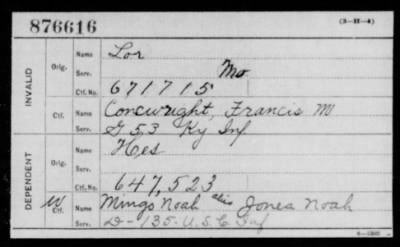 876616
(3-II-4)
INVALID
Orig.
Name Lor
Serv. Mo.
Ctf. No. 671715
Ctf.
Name Concwright, Francis M
Serv. G 53 Ky Inf
DEPENDENT
Orig.
Name Hes
Serv.
Ctf. No. 647,523
W Ctf.
Name Mingo Noah alis Jones Noah
Serv. D-135-U.S.C Inf